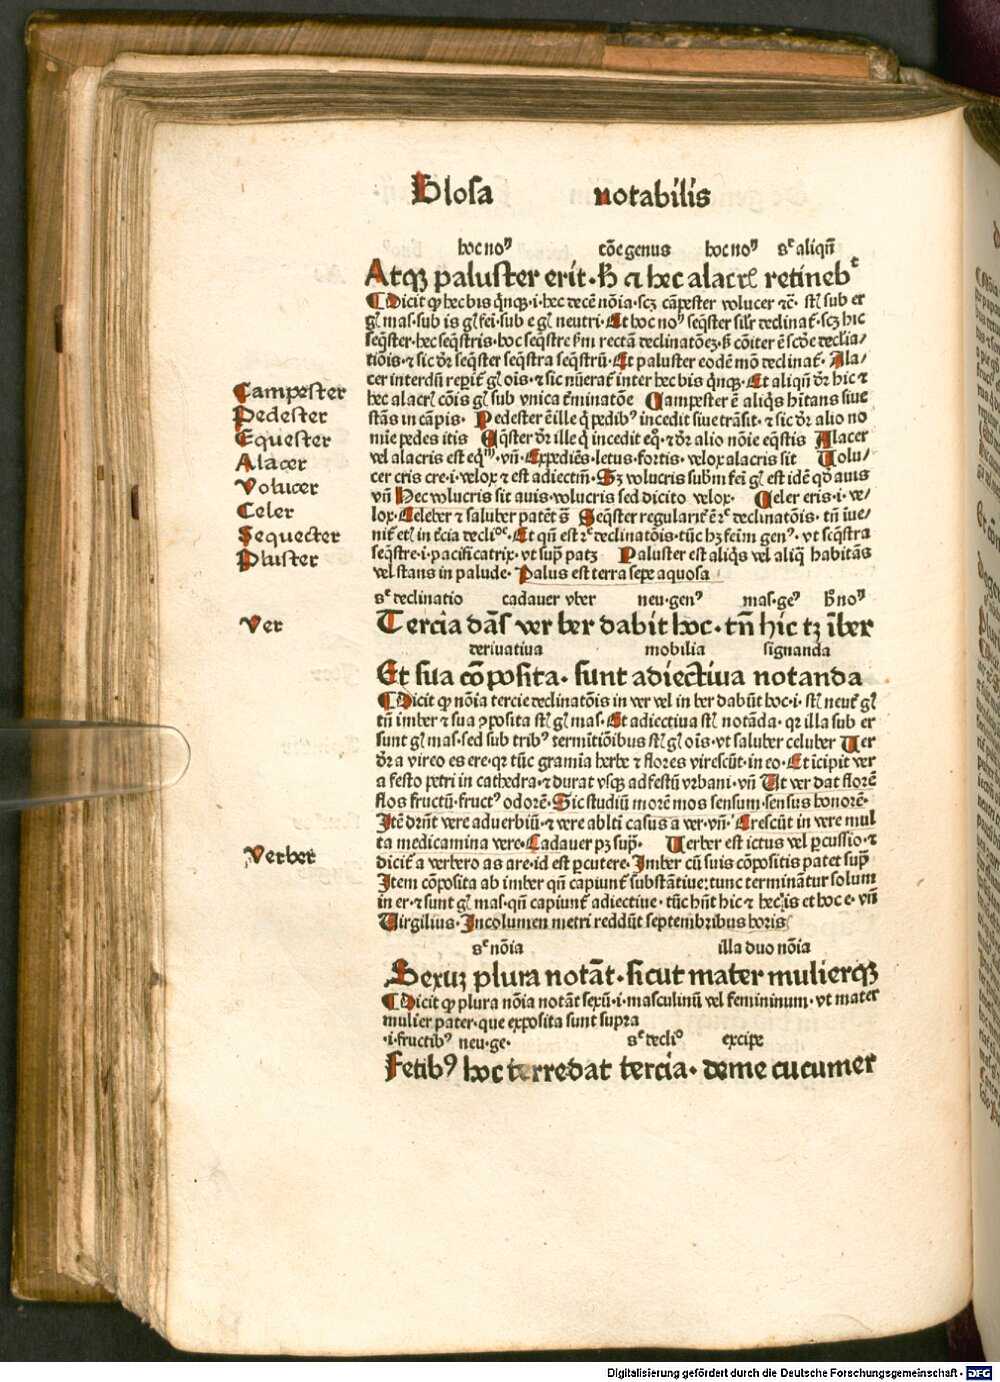 Glosa notabilis
hoc noꝰ cōe genus hoc noꝰ sᵉ aliqn̄
Atqꝫ paluster erit· h̄ ⁊ hec alacrꝭ retinebᵗ
Dicit ꝙ hec bis q̇nqꝫ·i·hec decē nōia·scꝫ cāpester volucer ⁊c̄· st̄ sub er
gn̄ꝭ mas·sub is gꝭ fei·sub e gꝭ neutri·Et hoc noꝰ seqster silr declinat̄·scꝫ hic
seqster·hec seqstris·hoc seqstre
tiōis·⁊ sic dr̄ seqster seqstra seqstrū·Et paluster eodē mō declinat̄· Ala/
cer interdū repit̄ gꝭ ois·⁊ sic nūerat̄ inter hec bis q̇nqꝫ·Et aliqn̄ dr̄ hic ⁊
hec alacrꝭ cōis gꝭ sub vnica t̄minatōe Campester ē aliqs hitans siue
stās in cāpis· Pedester ē ille q̇ pedibꝰ incedit siue trāsit·⁊ sic dr̄ alio no
mīe pedes itis Eqster dr̄ ille q̇ incedit eqͦ·⁊ dr̄ alio nōie eqstis Alacer
vel alacris est eqᵐ·vn̄·Expediēs·letus·fortis·velox alacris sit Uolu/
cer cris cre·i·velox ⁊ est adiectm̄·Sꝫ volucris subm̄ fei gꝭ est idē qd̄ auis
vn̄ Hec volucris sit auis·volucris sed dicito velox· Celer eris·i·ve/
lox·Celeber ⁊ saluber patēt s̄ Seqster
seqstre·i·pacificatrix·vt sup̄ patꝫ Paluster est aliqs vel aliq̄ habitās
vel stans in palude·Palus est terra sepe aquosa
Campester
Pedester
Equester
Alacer
Volucer
Celer
Sequester
Pluster
sᵉ declinatio cadauer vber neu·genꝰ mas·geꝰ h̄ noꝰ
Tercia dās ver ber dabit hoc·tn̄ hic tꝫ īber
Ver
deriuatiua mobilia signanda
Et sua cōposita·sunt adiectiua notanda
Dicit ꝙ nōia tercie declinatōis in ver vel in ber dabūt hoc·i·st̄ neut̄ gꝭ
tn̄ imber ⁊ sua ꝯposita st̄ gꝭ mas·Et adiectiua st̄ notāda·qꝛ illa sub er
sunt gꝭ mas·sed sub tribꝰ termītiōibus st̄ gꝭ ois·vt saluber celuber Uer
dr̄ a vireo es ere·qꝛ tūc gramīa herbe ⁊ flores virescūt in eo·Et īcipit ver
a festo petri in cathedra·⁊ durat vsqꝫ ad festū vrbani·vn̄ Ut ver dat florē
flos fructū·fructꝰ odorē·Sic studiū morē mos sensum·sensus honorē·
Itē drn̄t vere aduerbiū·⁊ vere ablti casus a ver·vn̄·Crescūt in vere mul
ta medicamina vere·Cadauer pꝫ sup̄· Uerber est ictus vel ꝑcussio·⁊
dicit̄ a verbero as are·id est ꝑcutere·Imber cū suis cōpositis patet sup̄
Verber
Item cōposita ab imber qn̄ capiunt̄ substātiue·tunc terminātur solum
in er·⁊ sunt gꝭ mas·qn̄ capiunt̄ adiectiue·tūc hn̄t hic ⁊ hec is et hoc e·vn̄
Uirgilius·Incolumen metri reddūt septembribus horis
sᵉ nōia illa duo nōia
Sexuꝫ plura notāt·sicut mater mulierqꝫ
Dicit ꝙ plura nōia notāt sexū·i·masculinū vel femininum·vt mater
mulier pater·que exposita sunt supra
·i·fructibꝰ neu·ge· sᵉ decliͦ excipe
Fetibꝰ hoc ter redat tercia·deme cucumer
Digitalisierung gefördert durch die Deutsche Forschungsgemeinschaft · DFG